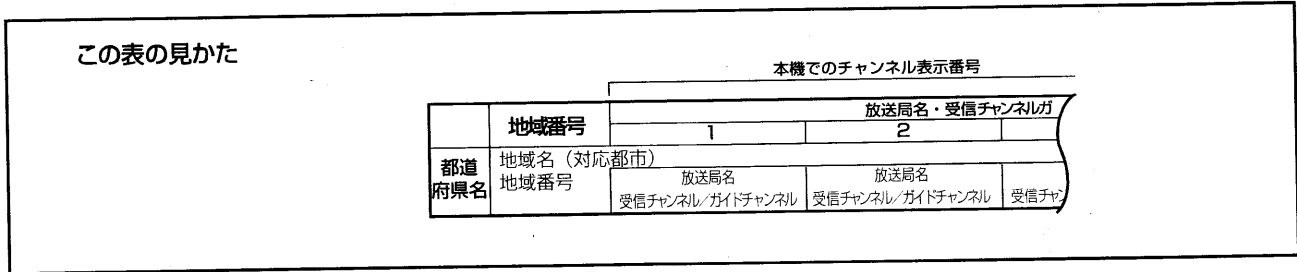 この表の見かた
本機でのチャンネル表示番号
地域番号
放送局名・受信チャンネルガ
1
2
都道
府県名
地域名（対応都市）
地域番号
放送局名
受信チャンネル／ガイドチャンネル
放送局名
受信チャンネル／ガイドチャンネル
受信チャン